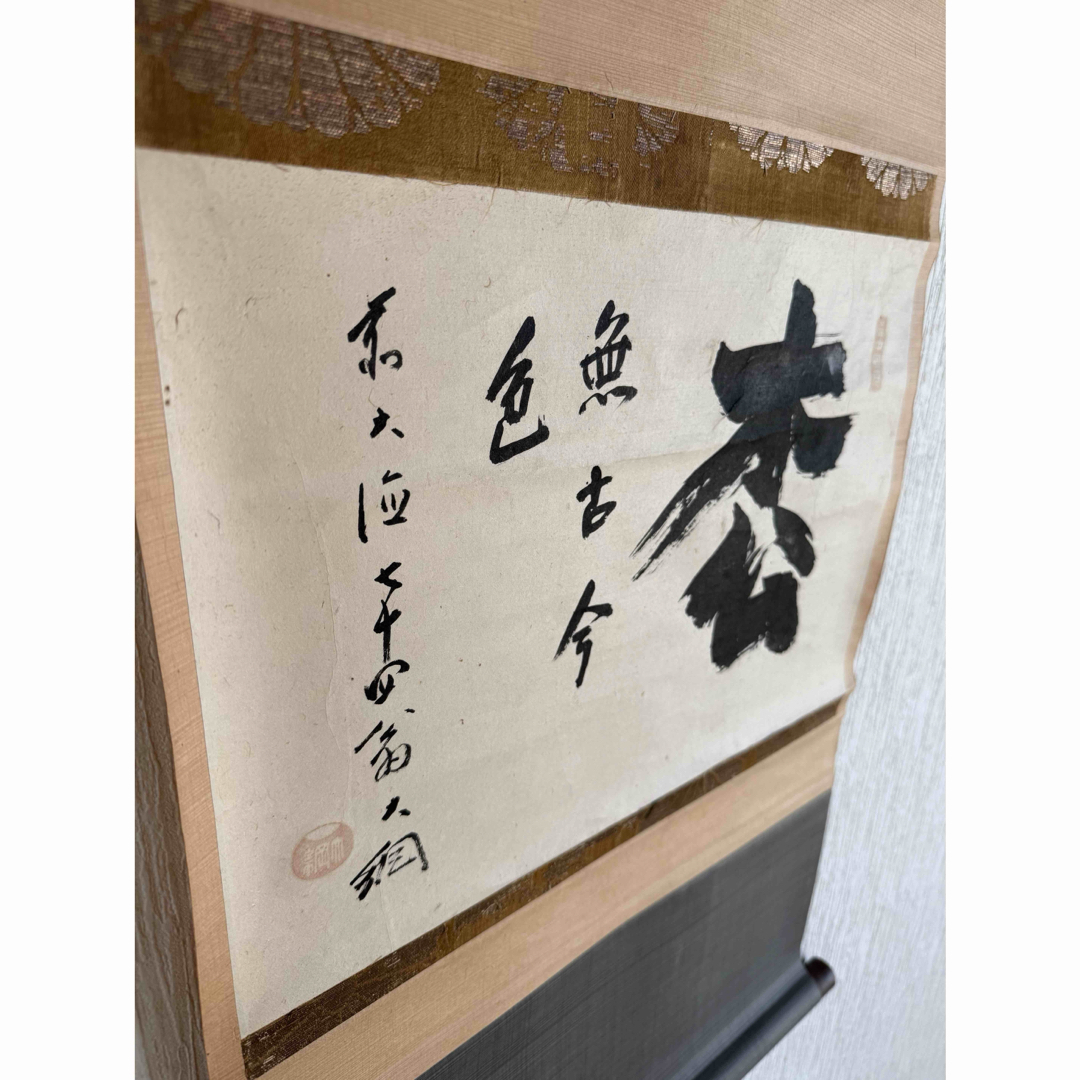 枩
無古今
色
前大徳七十四翁大綱
大綱